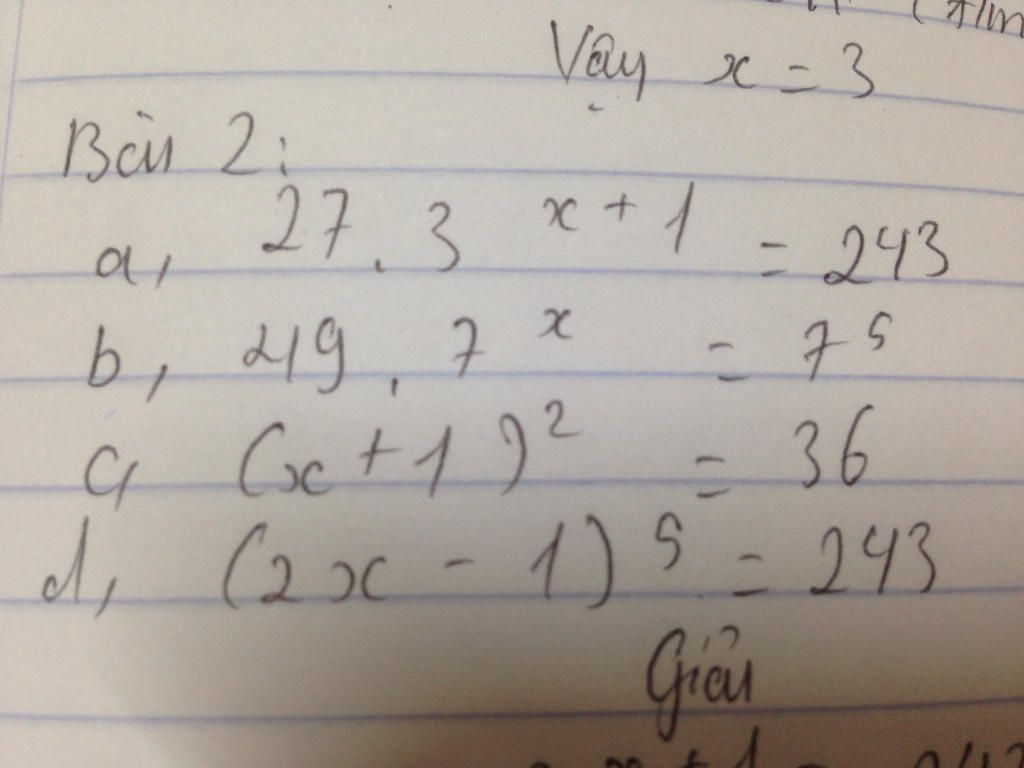 Vậy x = 3
Bài 2:
a, 27 . 3^{x + 1} = 243
b, 49 . 7^{x} = 7^{5}
c, (x + 1)^{2} = 36
d, (2x - 1)^{5} = 243
Giải